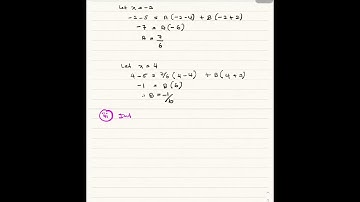 Let x = -2
-2-5 = A(-2-4) + B(-2+2)
-7 = A(-6)
A = 7/6
Let x = 4
4-5 = 7/6(4-4) + B(4+2)
-1 = B(6)
∴ B = -1/6
iii